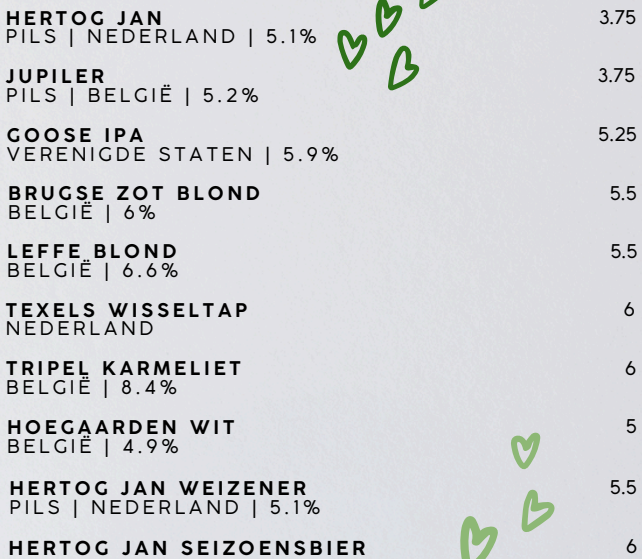 HERTOG JAN 3.75
PILS | NEDERLAND | 5.1%
JUPILER 3.75
PILS | BELGIË | 5.2%
GOOSE IPA 5.25
VERENIGDE STATEN | 5.9%
BRUGSE ZOT BLOND 5.5
BELGIË | 6%
LEFFE BLOND 5.5
BELGIË | 6.6%
TEXELS WISSELTAP 6
NEDERLAND
TRIPEL KARMELIET 6
BELGIË | 8.4%
HOEGAARDEN WIT 5
BELGIË | 4.9%
HERTOG JAN WEIZENER 5.5
PILS | NEDERLAND | 5.1%
HERTOG JAN SEIZOENSBIER 6